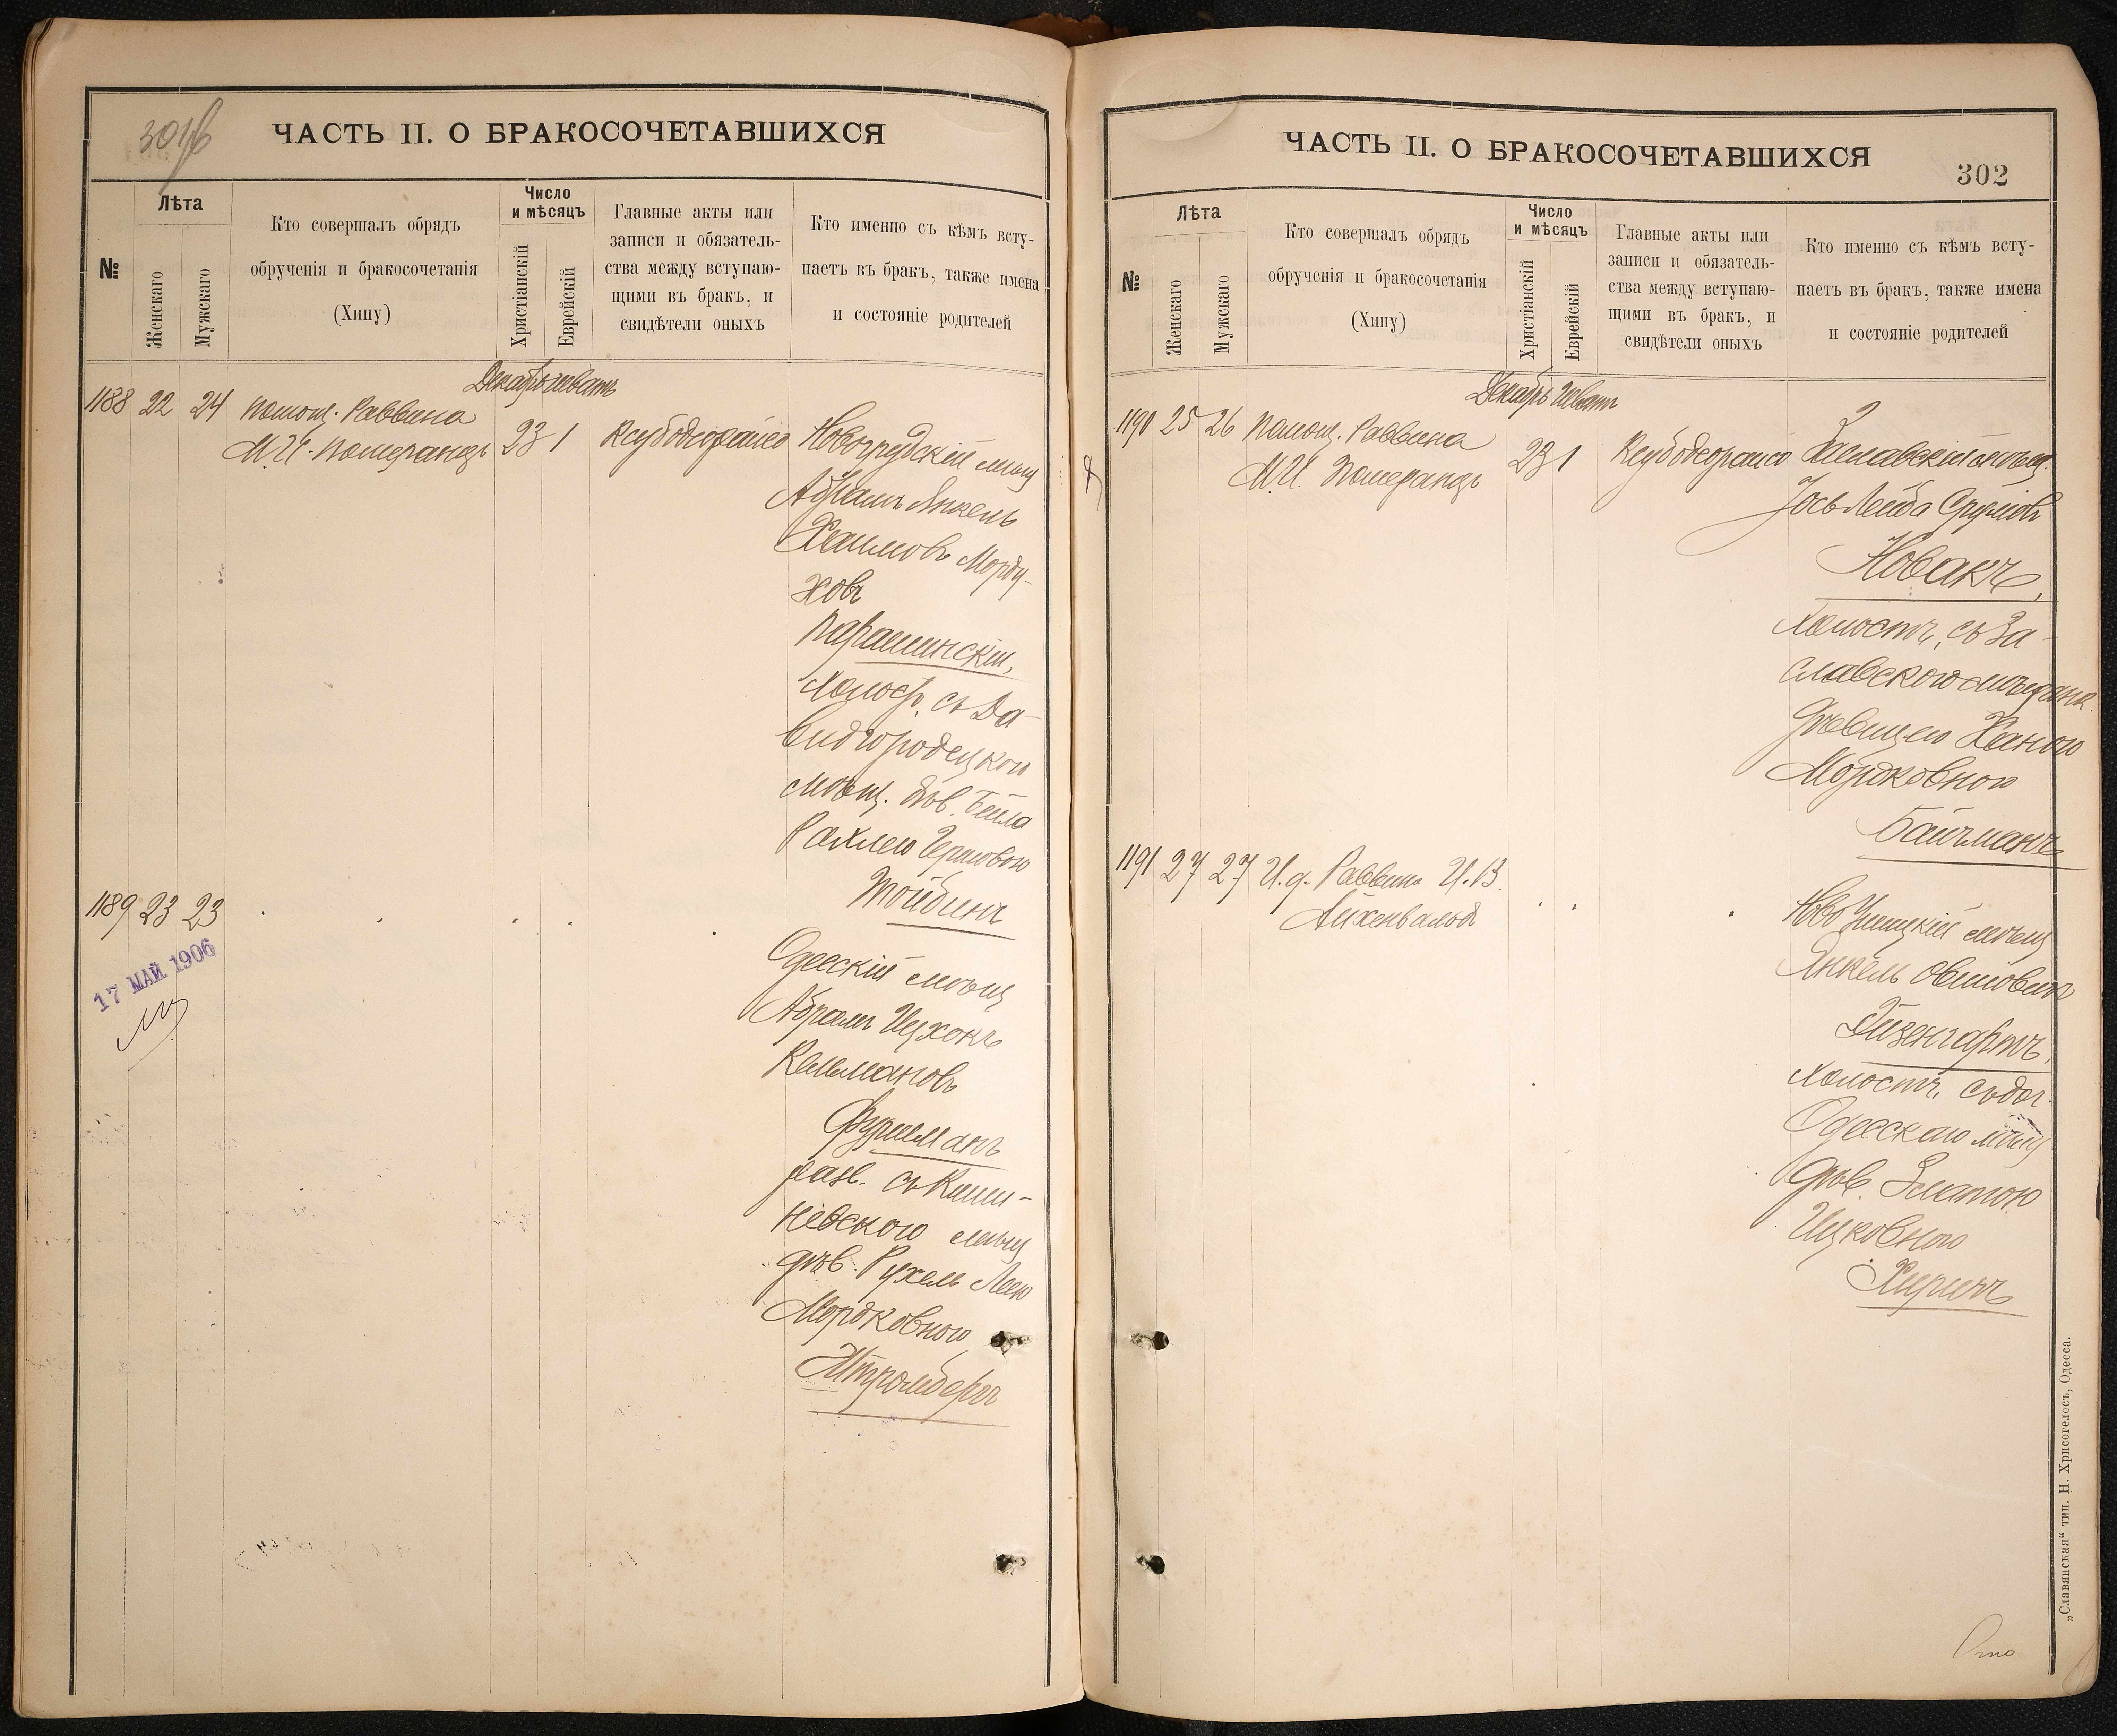 301/б
ЧАСТЬ II. О БРАКОСОЧЕТАВШИХСЯ
№
Лѣта
Женскаго
Мужскаго
Кто совершалъ обрядъ
обрученія и бракосочетанія
(Хипу)
Число
и мѣсяцъ
Христіанскій
Еврейскій
Главные акты или
записи и обязатель-
ства между вступаю-
щими въ бракъ, и
свидѣтели оныхъ
Кто именно съ кѣмъ всту-
паетъ въ бракъ, также имена
и состояніе родителей
Декабрь Шеватъ
1188 22 24 Помощ. Раввина
М. И. Померанцъ 23 1
Новогрудскій мѣщ
Абрамъ Янкель
Хаимовъ Морду-
ховъ
Парашинскій,
холост. съ Да-
видгородецкою
мѣщ. дѣв. Бейла
Рахлею Гершовою
Тойбинъ
1189 23 23
17 МАЙ 1906
Одесскій мѣщ
Абрамъ Ицхокъ
Кальмановъ
Фурманъ
разв. съ Киши-
невскою мѣщ
дѣв. Рухель Леею
Мордковною
Штромбергъ
ЧАСТЬ II. О БРАКОСОЧЕТАВШИХСЯ
302
№
Лѣта
Женскаго
Мужскаго
Кто совершалъ обрядъ
обрученія и бракосочетанія
(Хипу)
Число
и мѣсяцъ
Христіанскій
Еврейскій
Главные акты или
записи и обязатель-
ства между вступаю-
щими въ бракъ, и
свидѣтели оныхъ
Кто именно съ кѣмъ всту-
паетъ въ бракъ, также имена
и состояніе родителей
Декабрь Шеватъ
1190 25 26 Помощ. Раввина
М. И. Померанцъ 23 1
Заславскій мѣщ.
Іось Лейба Сруловъ
Новакъ,
холостъ, съ За-
славскою мѣщанк.
дѣвицею Ханою
Мордковною
Байчманъ
1191 27 27 И. д. Раввина И. В.
Айхенвальдъ
Ново Ушицкій мѣщ
Янкель Овшіовичъ
Гизенгартъ,
холостъ, съ доч.
Одесскаго мѣщ
дѣв. Златою
Ицковною
Хиричъ
„Славянская“ тип. Н. Хрисогелосъ, Одесса.